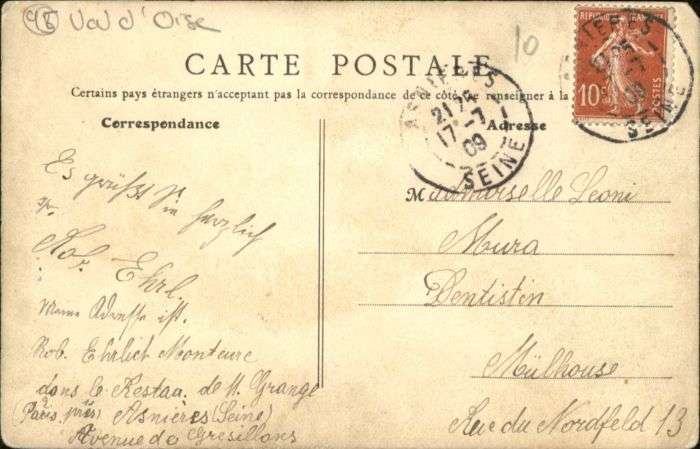 95 Val d'Oise
10
CARTE POSTALE
Certains pays étrangers n'acceptant pas la correspondance de ce côté, se renseigner à la
Correspondance
Adresse
ASNIERES
21 25
17 - 7
09
SEINE
REPUBLIQUE FRANÇAISE
10c
POSTES
ASNIERES
SEINE
Es grüßt Sie herzlich
Rob. Ehrl.
Meine Adresse ist.
Rob. Ehrlich Monteure
dans le Restau. de M. Grange
(Paris près) Asnières (Seine)
Avenue de Gresillons
Mademoiselle Leoni
Mura
Dentistin
Mülhouse
Rue du Nordfeld 13